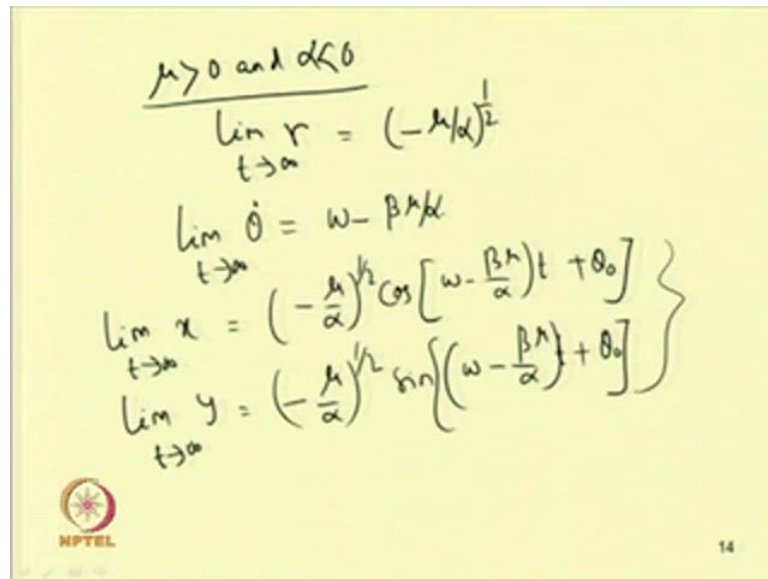 μ > 0 and α < 0
lim r = (-μ/α)^{1/2}
t→∞
lim θ̇ = ω - βμ/α
t→∞
lim x = (-μ/α)^{1/2} cos[ω - βμ/α)t + θ₀]
t→∞
lim y = (-μ/α)^{1/2} sin[(ω - βμ/α)t + θ₀]
t→∞
NPTEL
14